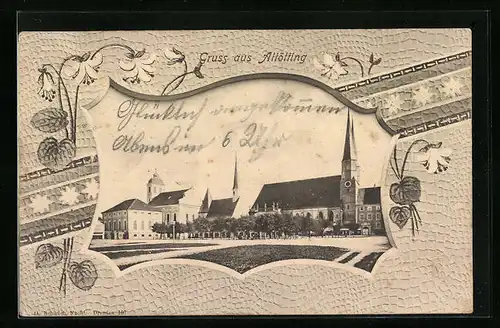 Gruss aus Altötting
Glücklich angekommen
Abends um 6 Uhr